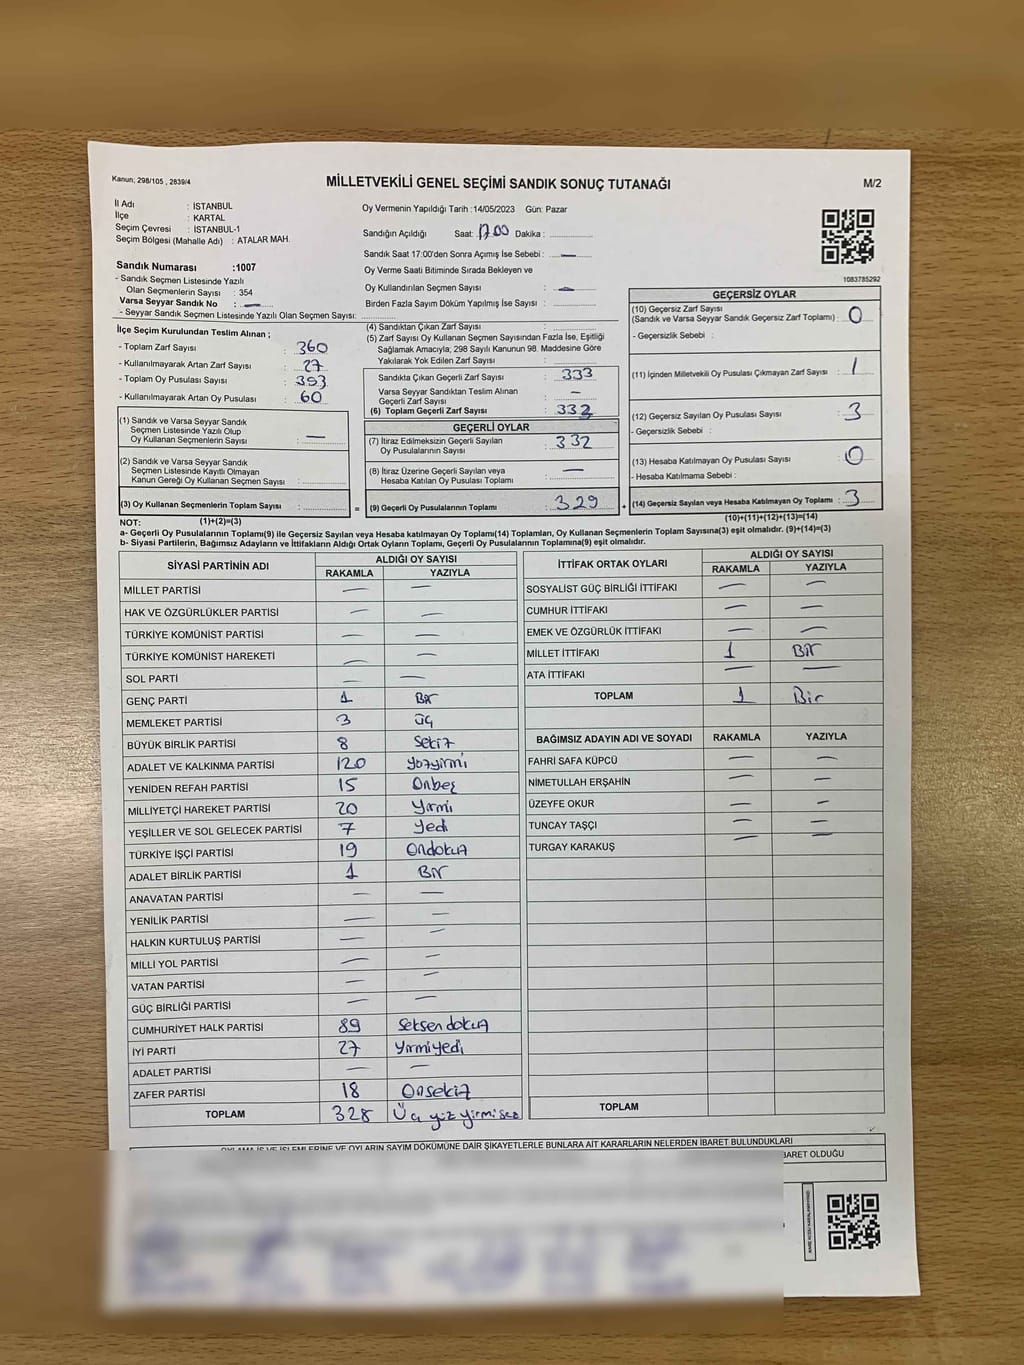 Kanun; 298/105 , 2839/4
MİLLETVEKİLİ GENEL SEÇİMİ SANDIK SONUÇ TUTANAĞI
M/2
İl Adı : İSTANBUL
İlçe : KARTAL
Seçim Çevresi : İSTANBUL-1
Seçim Bölgesi (Mahalle Adı) : ATALAR MAH.
Sandık Numarası :1007
- Sandık Seçmen Listesinde Yazılı
Olan Seçmenlerin Sayısı : 354
Varsa Seyyar Sandık No : —
- Seyyar Sandık Seçmen Listesinde Yazılı Olan Seçmen Sayısı:
Oy Vermenin Yapıldığı Tarih :14/05/2023 Gün: Pazar
Sandığın Açıldığı Saat: 17.00 Dakika :
Sandık Saat 17:00'den Sonra Açımış İse Sebebi : —
Oy Verme Saati Bitiminde Sırada Bekleyen ve
Oy Kullandırılan Seçmen Sayısı : —
Birden Fazla Sayım Döküm Yapılmış İse Sayısı :
1083785292
İlçe Seçim Kurulundan Teslim Alınan ;
- Toplam Zarf Sayısı : 360
- Kullanılmayarak Artan Zarf Sayısı : 27
- Toplam Oy Pusulası Sayısı : 393
- Kullanılmayarak Artan Oy Pusulası : 60
(1) Sandık ve Varsa Seyyar Sandık
Seçmen Listesinde Yazılı Olup
Oy Kullanan Seçmenlerin Sayısı : —
(2) Sandık ve Varsa Seyyar Sandık
Seçmen Listesinde Kayıtlı Olmayan
Kanun Gereği Oy Kullanan Seçmen Sayısı :
(3) Oy Kullanan Seçmenlerin Toplam Sayısı :
(4) Sandıktan Çıkan Zarf Sayısı :
(5) Zarf Sayısı Oy Kullanan Seçmen Sayısından Fazla İse, Eşitliği
Sağlamak Amacıyla, 298 Sayılı Kanunun 98. Maddesine Göre
Yakılarak Yok Edilen Zarf Sayısı :
Sandıkta Çıkan Geçerli Zarf Sayısı : 333
Varsa Seyyar Sandıktan Teslim Alınan
Geçerli Zarf Sayısı : —
(6) Toplam Geçerli Zarf Sayısı : 333
GEÇERLİ OYLAR
(7) İtiraz Edilmeksizin Geçerli Sayılan
Oy Pusulalarının Sayısı : 332
(8) İtiraz Üzerine Geçerli Sayılan veya
Hesaba Katılan Oy Pusulası Toplamı : —
= (9) Geçerli Oy Pusulalarının Toplamı : 329 +
GEÇERSİZ OYLAR
(10) Geçersiz Zarf Sayısı
(Sandık ve Varsa Seyyar Sandık Geçersiz Zarf Toplamı) : 0
- Geçersizlik Sebebi :
(11) İçinden Milletvekili Oy Pusulası Çıkmayan Zarf Sayısı : 1
(12) Geçersiz Sayılan Oy Pusulası Sayısı : 3
- Geçersizlik Sebebi :
(13) Hesaba Katılmayan Oy Pusulası Sayısı : 0
- Hesaba Katılmama Sebebi :
(14) Geçersiz Sayılan veya Hesaba Katılmayan Oy Toplamı : 3
NOT: (1)+(2)=(3) (10)+(11)+(12)+(13)=(14)
a- Geçerli Oy Pusulalarının Toplamı(9) ile Geçersiz Sayılan veya Hesaba katılmayan Oy Toplamı(14) Toplamları, Oy Kullanan Seçmenlerin Toplam Sayısına(3) eşit olmalıdır. (9)+(14)=(3)
b- Siyasi Partilerin, Bağımsız Adayların ve İttifakların Aldığı Ortak Oyların Toplamı, Geçerli Oy Pusulalarının Toplamına(9) eşit olmalıdır.
SİYASİ PARTİNİN ADI ALDIĞI OY SAYISI
RAKAMLA YAZIYLA
MİLLET PARTİSİ — —
HAK VE ÖZGÜRLÜKLER PARTİSİ — —
TÜRKİYE KOMÜNİST PARTİSİ — —
TÜRKİYE KOMÜNİST HAREKETİ — —
SOL PARTİ — —
GENÇ PARTİ 1 Bir
MEMLEKET PARTİSİ 3 üç
BÜYÜK BİRLİK PARTİSİ 8 Sekiz
ADALET VE KALKINMA PARTİSİ 120 yüzyirmi
YENİDEN REFAH PARTİSİ 15 Onbeş
MİLLİYETÇİ HAREKET PARTİSİ 20 Yirmi
YEŞİLLER VE SOL GELECEK PARTİSİ 7 Yedi
TÜRKİYE İŞÇİ PARTİSİ 19 Ondokuz
ADALET BİRLİK PARTİSİ 1 Bir
ANAVATAN PARTİSİ — —
YENİLİK PARTİSİ — —
HALKIN KURTULUŞ PARTİSİ — —
MİLLİ YOL PARTİSİ — —
VATAN PARTİSİ — —
GÜÇ BİRLİĞİ PARTİSİ — —
CUMHURİYET HALK PARTİSİ 89 Seksendokuz
İYİ PARTİ 27 Yirmiyedi
ADALET PARTİSİ — —
ZAFER PARTİSİ 18 Onsekiz
TOPLAM 328 Üç yüz yirmisek
İTTİFAK ORTAK OYLARI ALDIĞI OY SAYISI
RAKAMLA YAZIYLA
SOSYALİST GÜÇ BİRLİĞİ İTTİFAKI — —
CUMHUR İTTİFAKI — —
EMEK VE ÖZGÜRLÜK İTTİFAKI — —
MİLLET İTTİFAKI 1 Bir
ATA İTTİFAKI — —
TOPLAM 1 Bir
BAĞIMSIZ ADAYIN ADI VE SOYADI RAKAMLA YAZIYLA
FAHRİ SAFA KÜPCÜ — —
NİMETULLAH ERŞAHİN — —
ÜZEYFE OKUR — —
TUNCAY TAŞÇI — —
TURGAY KARAKUŞ — —
TOPLAM
OYLAMA İŞ VE İŞLEMLERİNE VE OYLARIN SAYIM DÖKÜMÜNE DAİR ŞİKAYETLERLE BUNLARA AİT KARARLARIN NELERDEN İBARET BULUNDUKLARI
BARET OLDUĞU